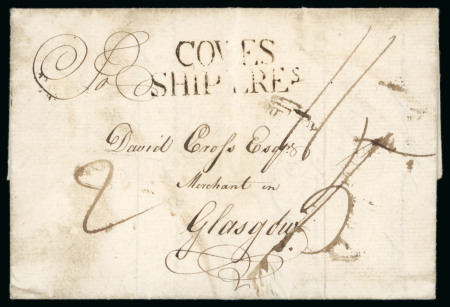 To
COWES
SHIP LRE S
David Cross Esqr
Merchant in
Glasgow
2